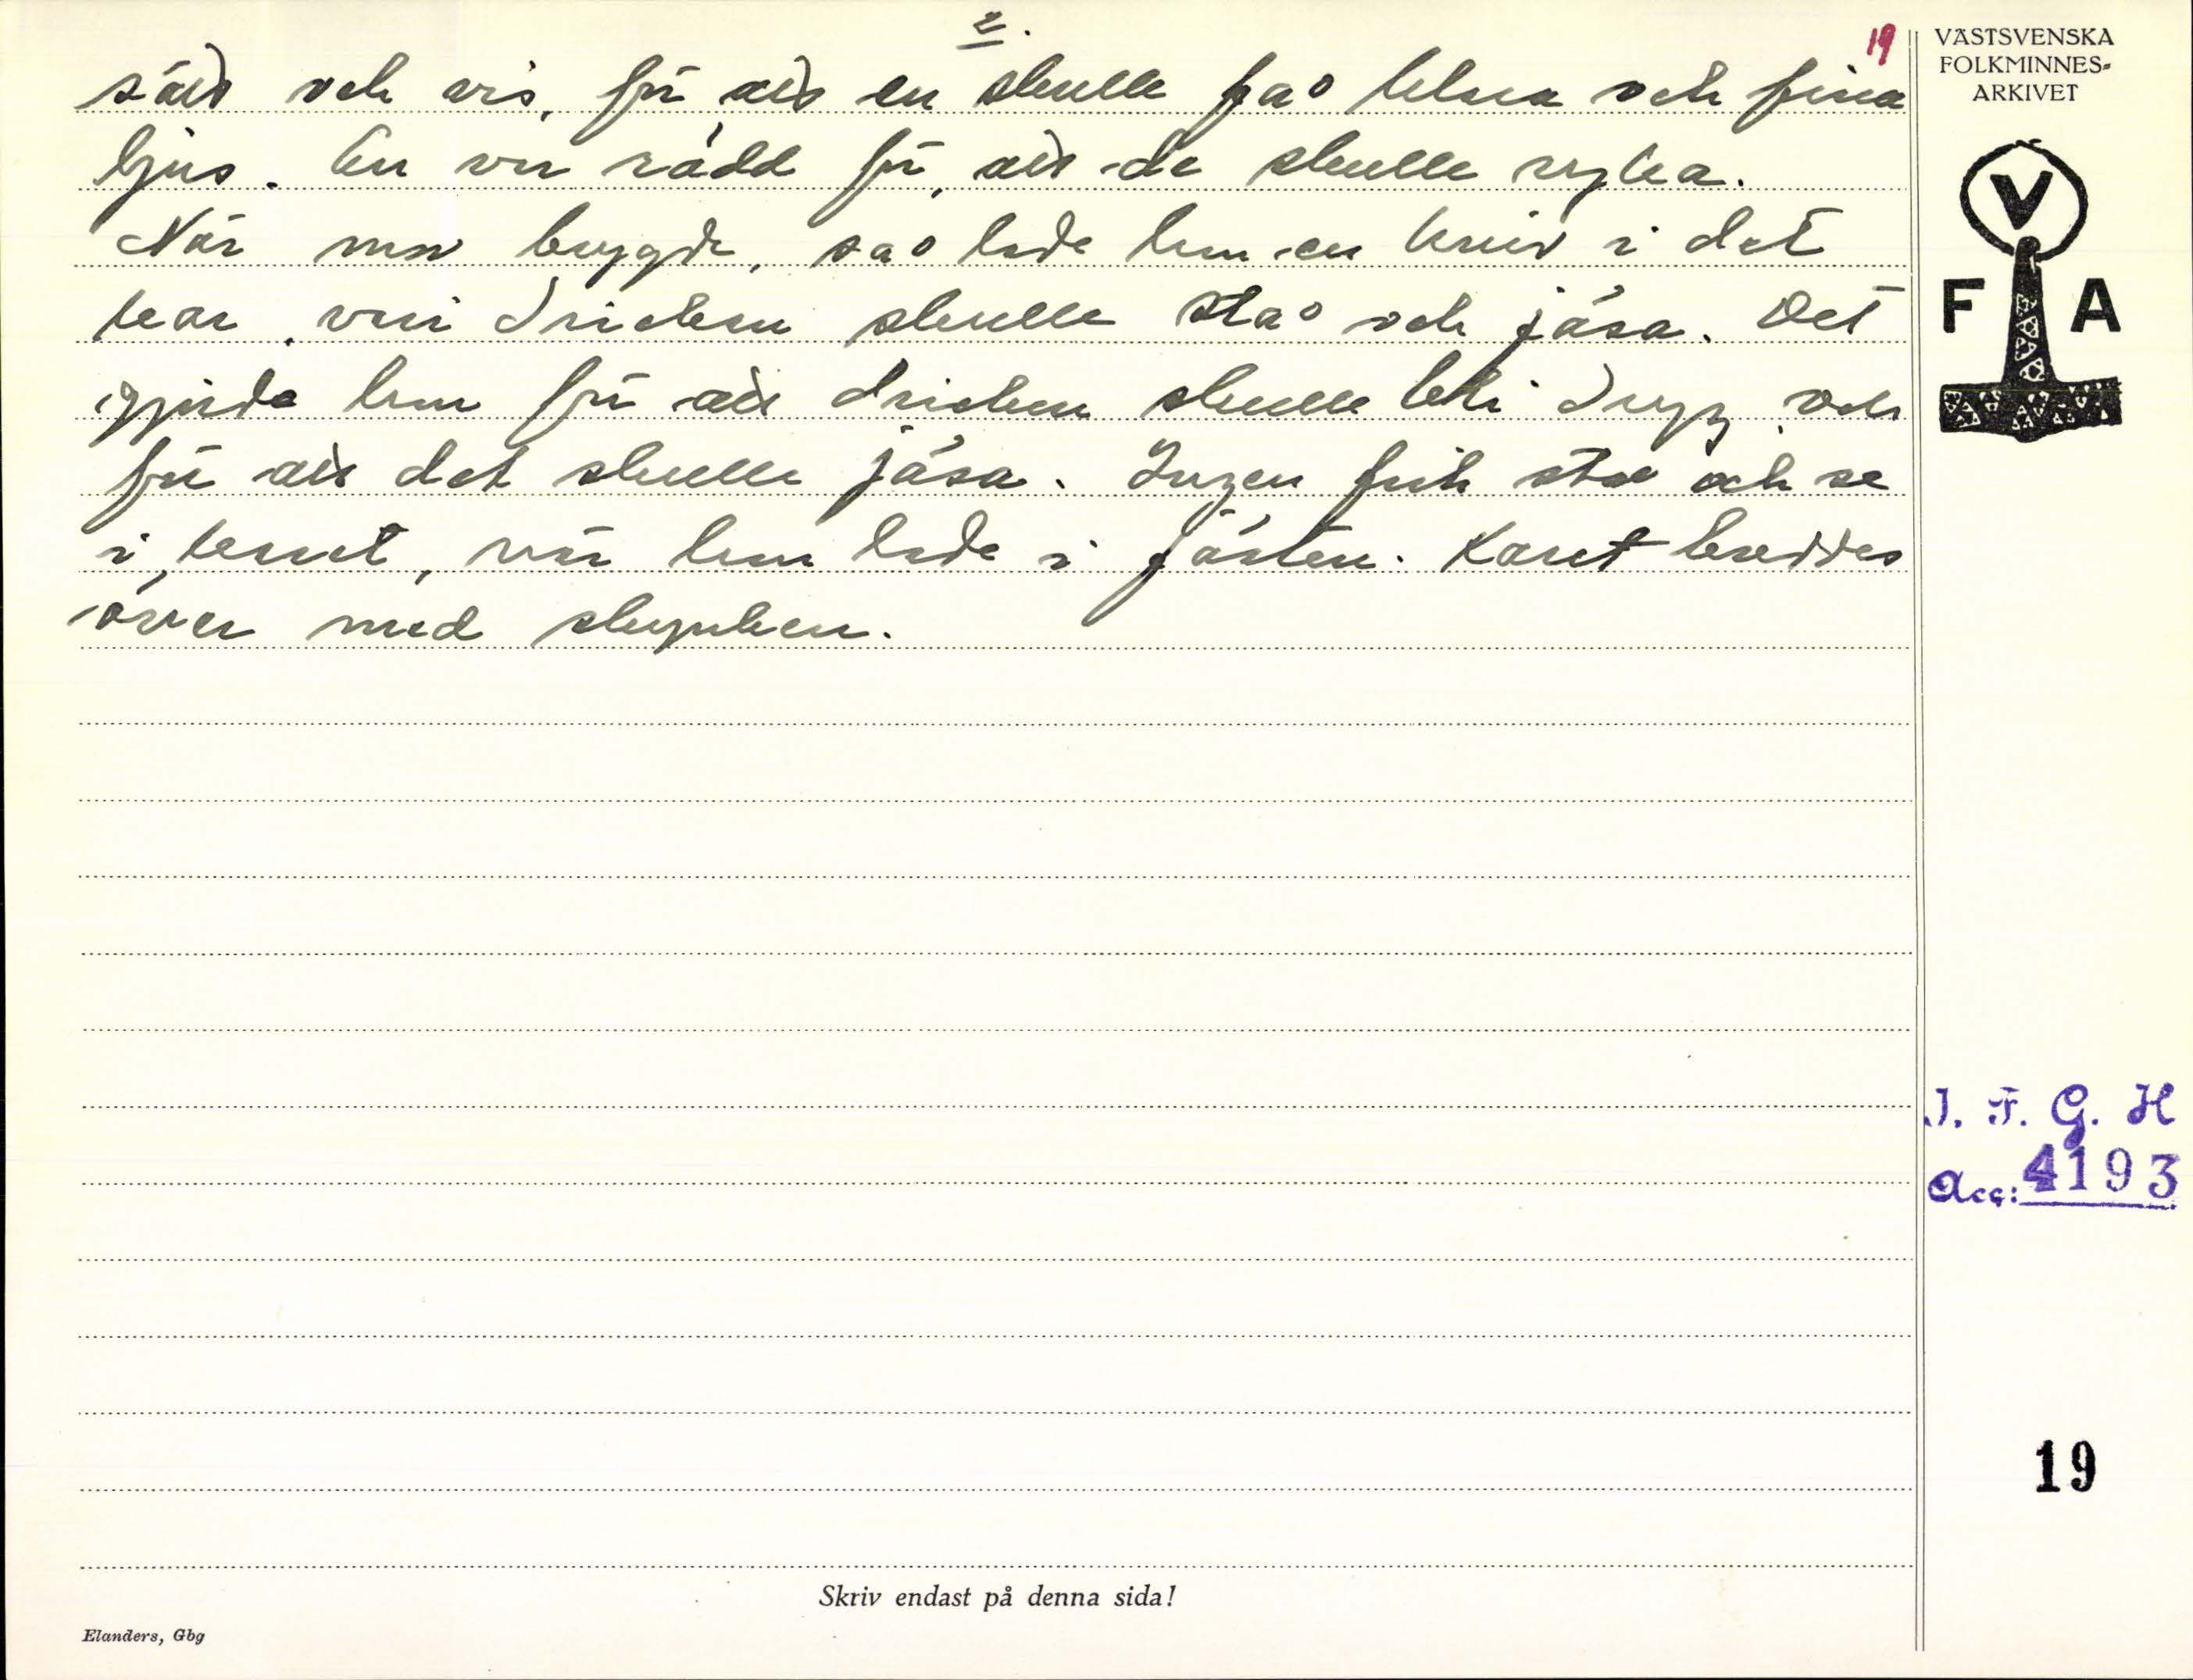 2.
19
sätt och vis, för att en skulle fao tekna och fina
ljus. En var rädd för, att de skulle ryka.
När man brygde, sao lade hun en kniv i det
kar, vori drickan skulle stao och jäsa. Det
gjorde hun för att drickan skulle bli dryg, och
för att det skulle jäsa. Ingen fick stao och se
i karet, när hun lade i jästen. Karet breddes
över med skynken.
VÄSTSVENSKA
FOLKMINNES-
ARKIVET
V
F A
I. F. G. H
Acc: 4193
19
Skriv endast på denna sida!
Elanders, Gbg